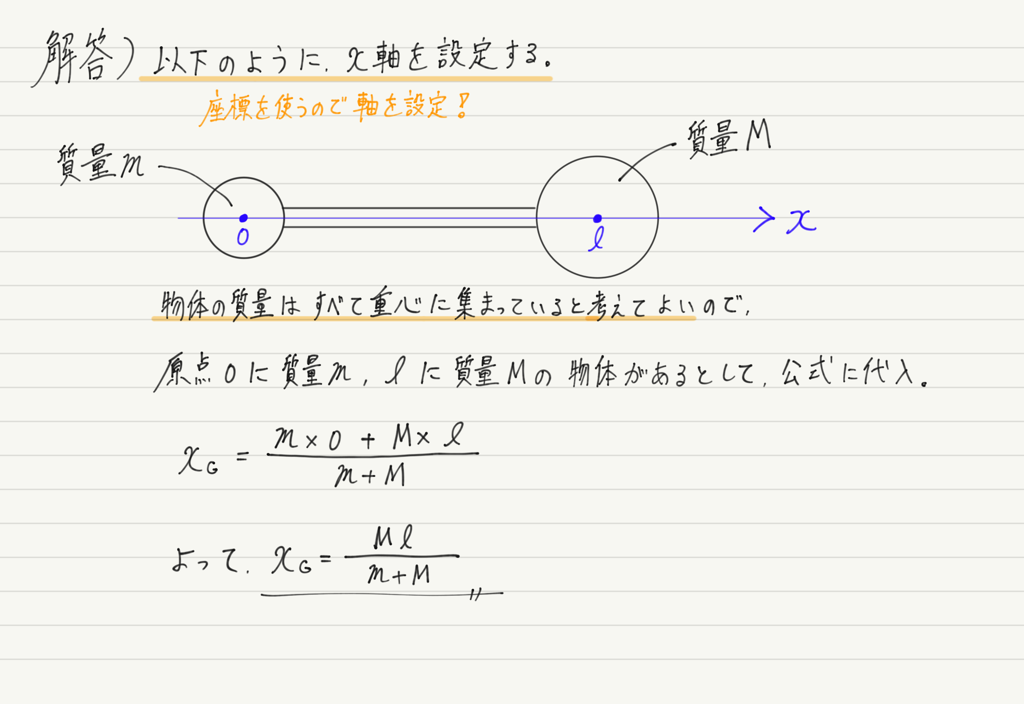 解答) 以下のように、x軸を設定する。
座標を使うので軸を設定!
質量m
質量M
0
l
x
物体の質量はすべて重心に集まっていると考えてよいので、
原点0に質量m, lに質量Mの物体があるとして、公式に代入。
x_G = (m×0 + M×l)/(m+M)
よって、x_G = Ml/(m+M)